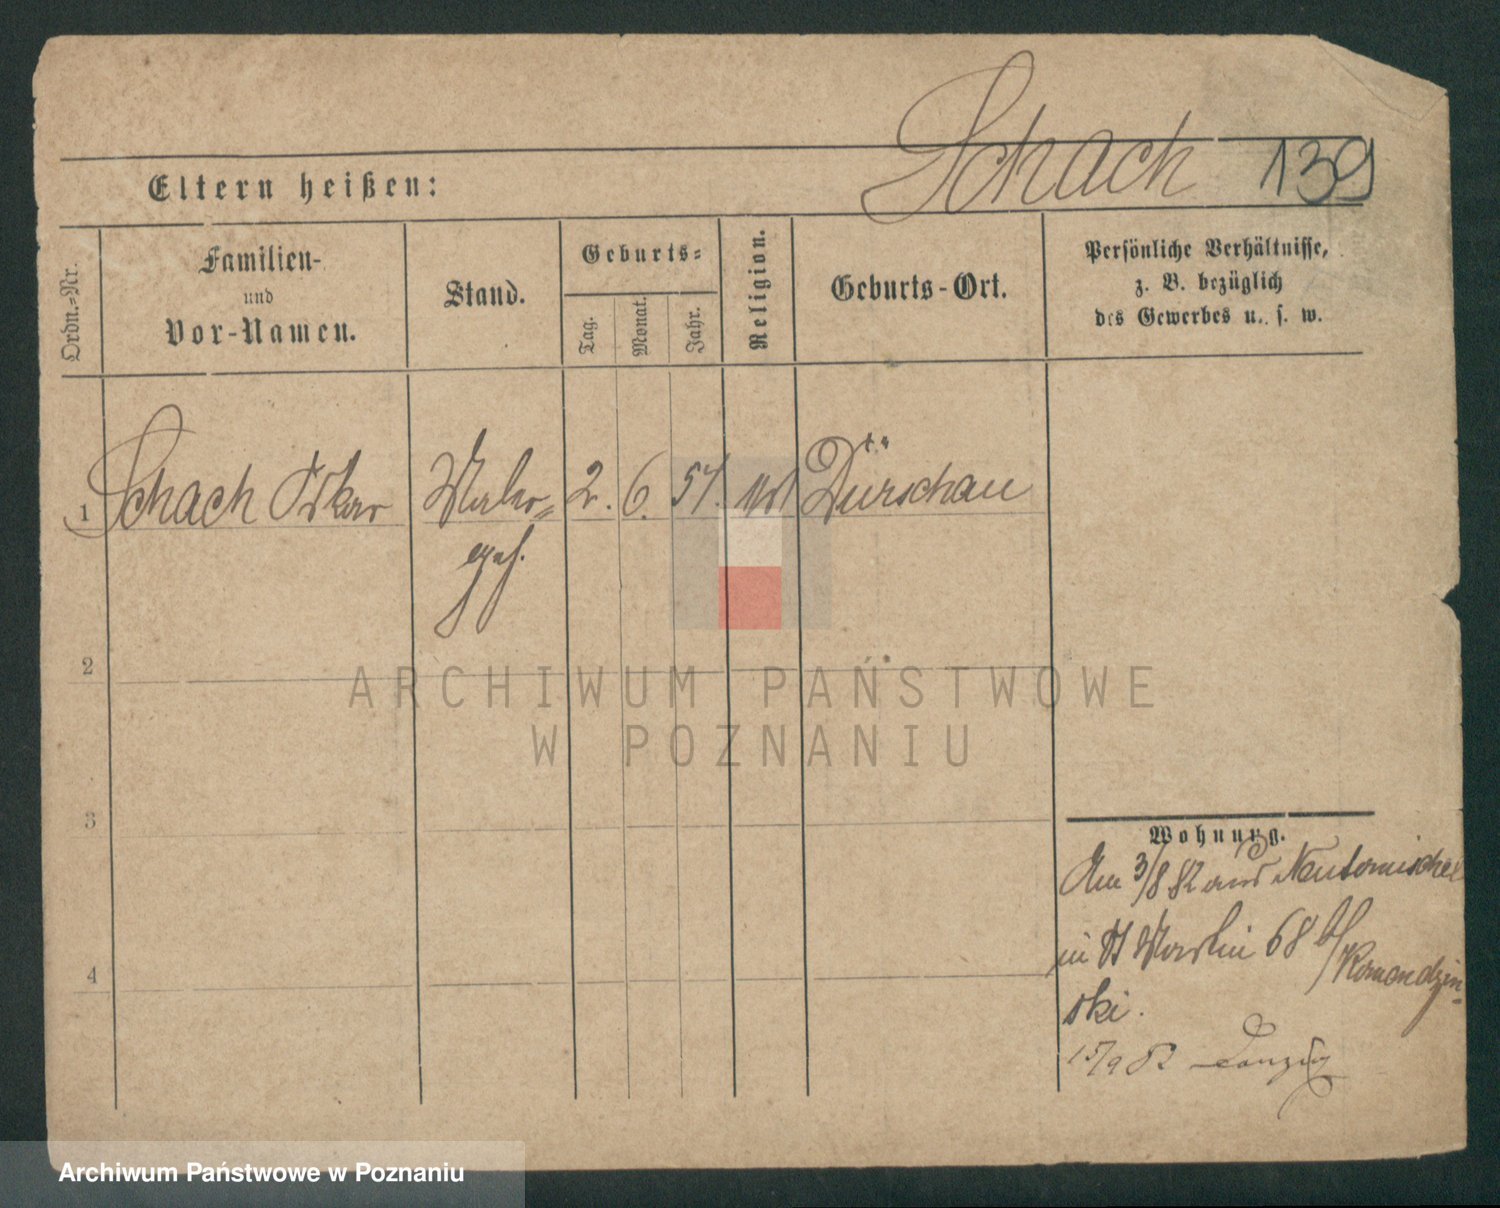 Schach 139
Eltern heißen:
Ordn.=Nr.
Familien-
und
Vor-Namen.
Stand.
Geburts=
Tag.
Monat.
Jahr.
Religion.
Geburts-Ort.
Persönliche Verhältnisse,
z. B. bezüglich
des Gewerbes u. s. w.
1 Schach Oskar Maler= 2. 6. 57. Dürschau
geh.
2
3
4
Wohnung.
Am 3/8 82 aus Neutomischel
in St Martin 68 b/
Romandzin-
ski.
15/9 82 Danzig
ARCHIWUM PAŃSTWOWE
W POZNANIU
Archiwum Państwowe w Poznaniu